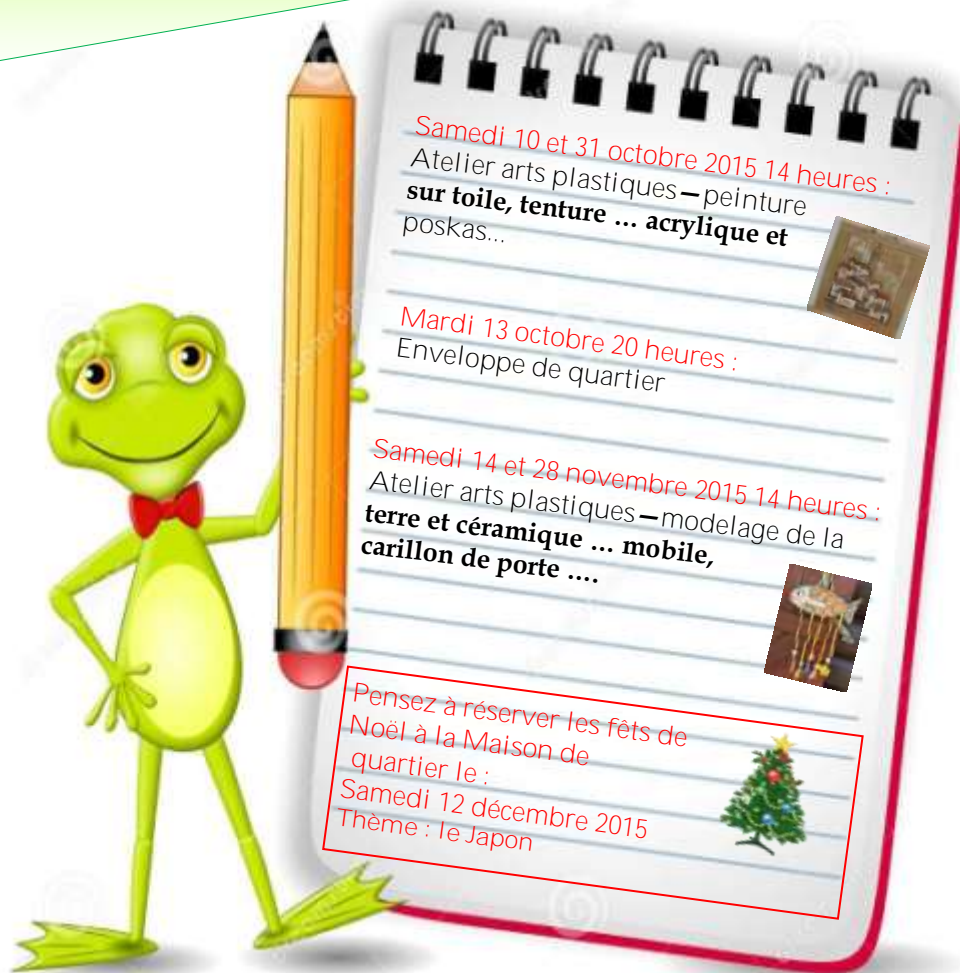 Samedi 10 et 31 octobre 2015 14 heures :
Atelier arts plastiques—peinture
sur toile, tenture ... acrylique et
poskas...
Mardi 13 octobre 20 heures :
Enveloppe de quartier
Samedi 14 et 28 novembre 2015 14 heures :
Atelier arts plastiques—modelage de la
terre et céramique ... mobile,
carillon de porte ....
Pensez à réserver les fêts de
Noël à la Maison de
quartier le :
Samedi 12 décembre 2015
Thème : le Japon